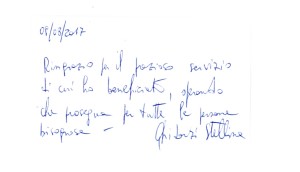 08/03/2017
Ringrazio per il prezioso servizio
di cui ho beneficiato, sperando
che prosegua per tutte le persone
bisognose –